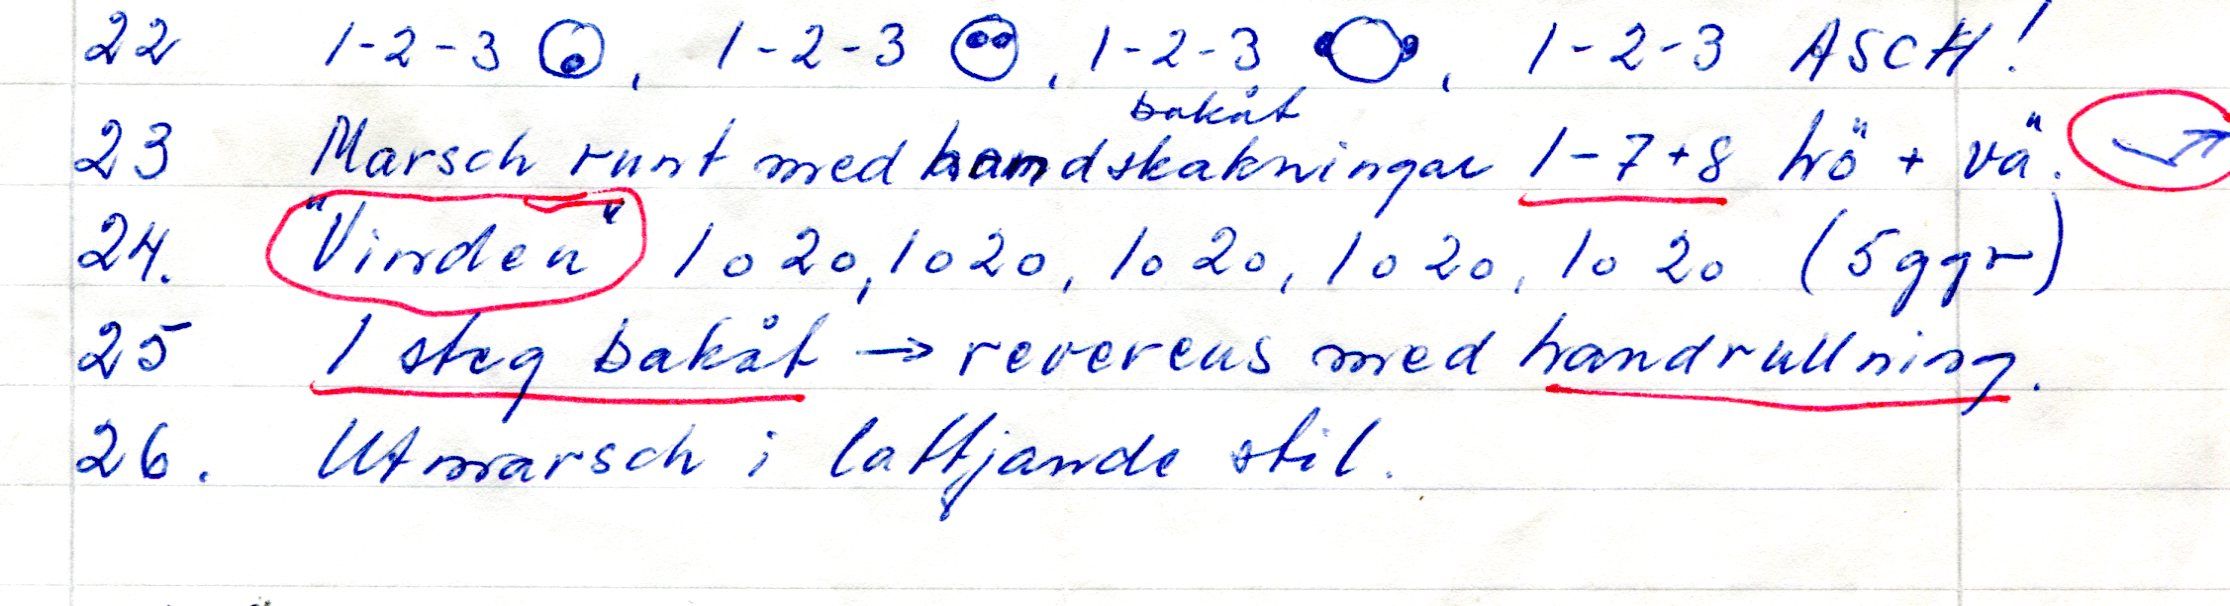 22 1-2-3 , 1-2-3 , 1-2-3 , 1-2-3 ASCH!
bakåt
23 Marsch runt med handskakningar 1-7+8 hö + vä.
24. "Vinden" 1 o 2 o, 1 o 2 o, 1 o 2 o, 1 o 2 o, 1 o 2 o (5 ggr)
25 1 steg bakåt → reverens med handrullning.
26. Utmarsch i lattjande stil.